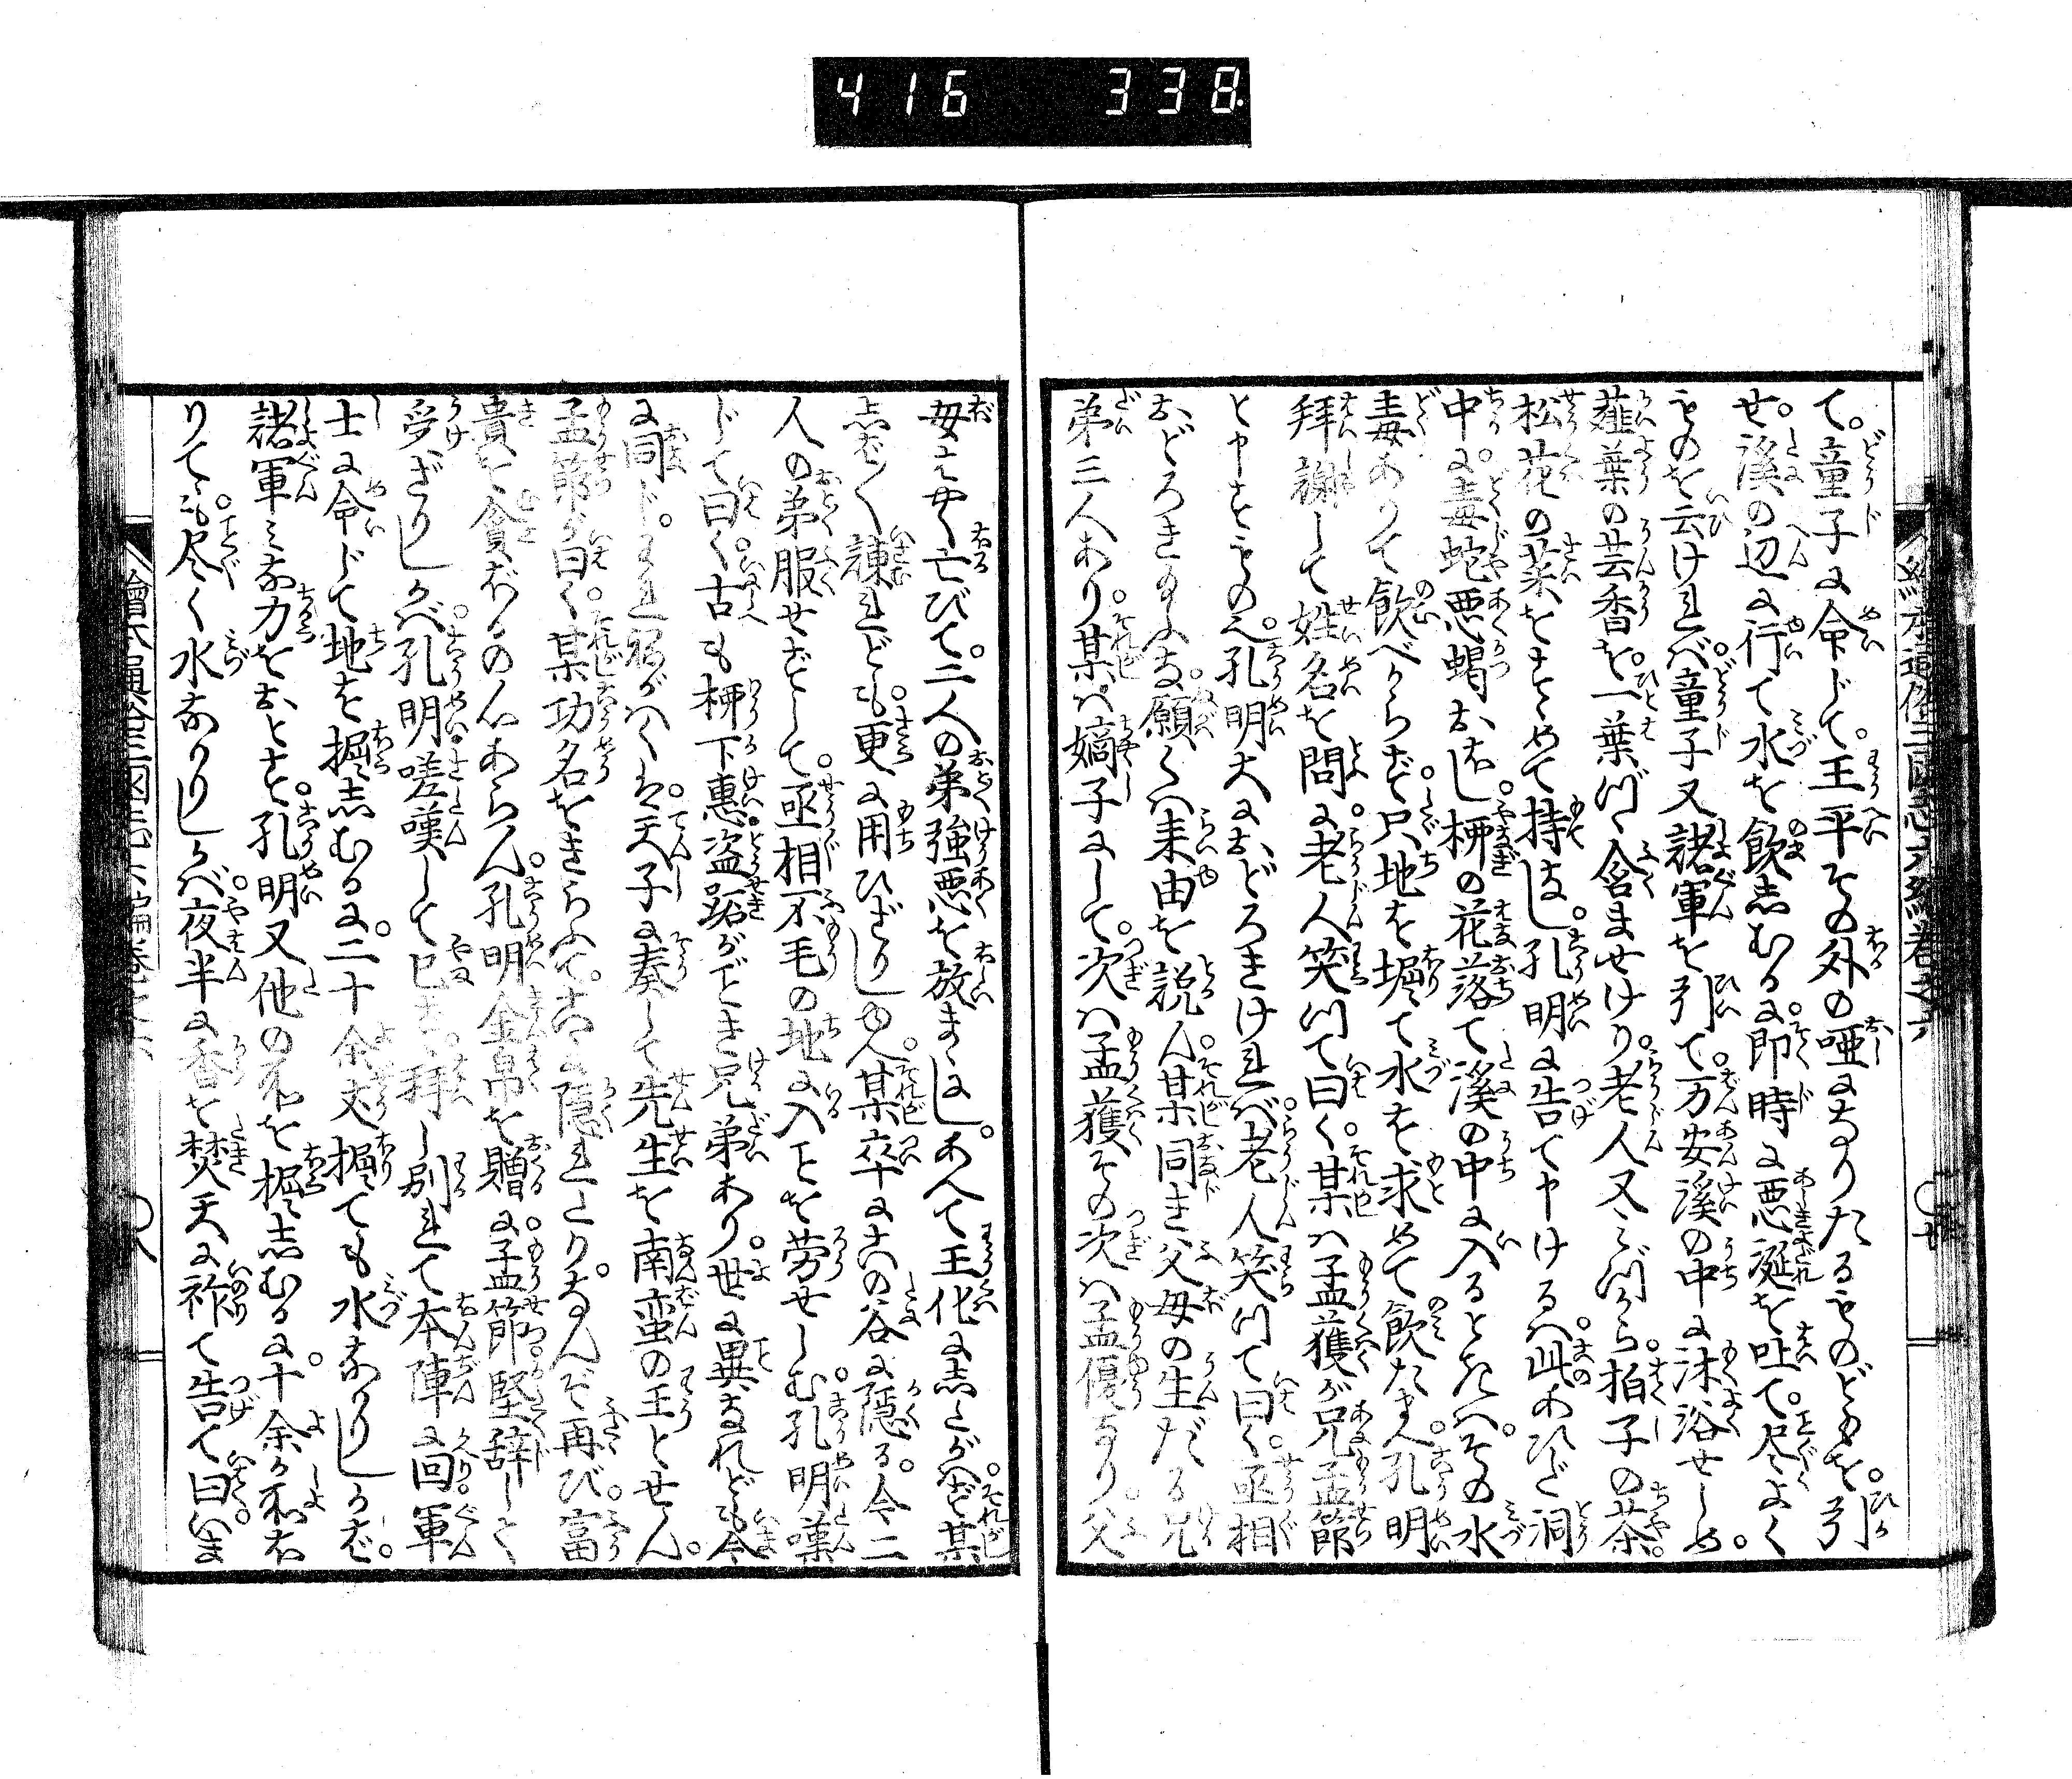 416 338
て。童子に命じて。王平その外の唖になりたるものどもを。引
せ。溪の辺に行て水を飲しむるに。即時に悪涎を吐て。尽よく
ものを云ければ。童子又諸軍を引て。万安溪の中に沐浴せしめ。
薤葉の芸香を。一葉づゝ含ませけり。老人又みづから。柏子の茶。
松花の菜をすゝめて持なし。孔明に告て申けるは。此あひだ洞
中に。毒蛇悪蝎おほし。柳の花落て溪の中に入るときは。その水
毒ありて飲べからず。只地を堀て水を求めて飲たまへ。孔明
拝謝して姓名を問に。老人笑つて曰く。某は孟獲が兄孟節
と申すもの也。孔明大におどろきければ。老人笑つて曰く。丞相
おどろき給ふな。願くは来由を説ん。某同き父母の生だる兄
弟三人あり。某は嫡子にして。次は孟獲その次は孟優なり。父
母とも亡びて。二人の弟強悪を放まゝにし。あへて王化にしたがはず。某
しば〱諫れども。更に用ひざりしゆへ。某卒にこの谷に隠る。今二
人の弟服せずして。丞相不毛の地に入ことを労せしむ。孔明嘆
じて曰く。古も柳下恵。盗跖がごとき兄弟あり。世に異なれども今
に同じ。われ願がはくは。天子に奏して先生を南蛮の王とせん。
孟節が曰く。某功名をきらふて。こゝに隠れたり。なんぞ再び。富
貴を貪ぼるの心あらん。孔明金帛を贈に。孟節堅辞して
受ざりしかば。孔明嗟嘆して已ず。拝し別れて本陣に回。軍
士に命じて地を掘しむるに。二十余丈掘ても水なかりしかば。
諸軍みな力をおとす。孔明又他の処を掘しむるに。十余か所お
りても。尽く水なかりしかば。夜半に香を焚天に祚て告て曰。いま